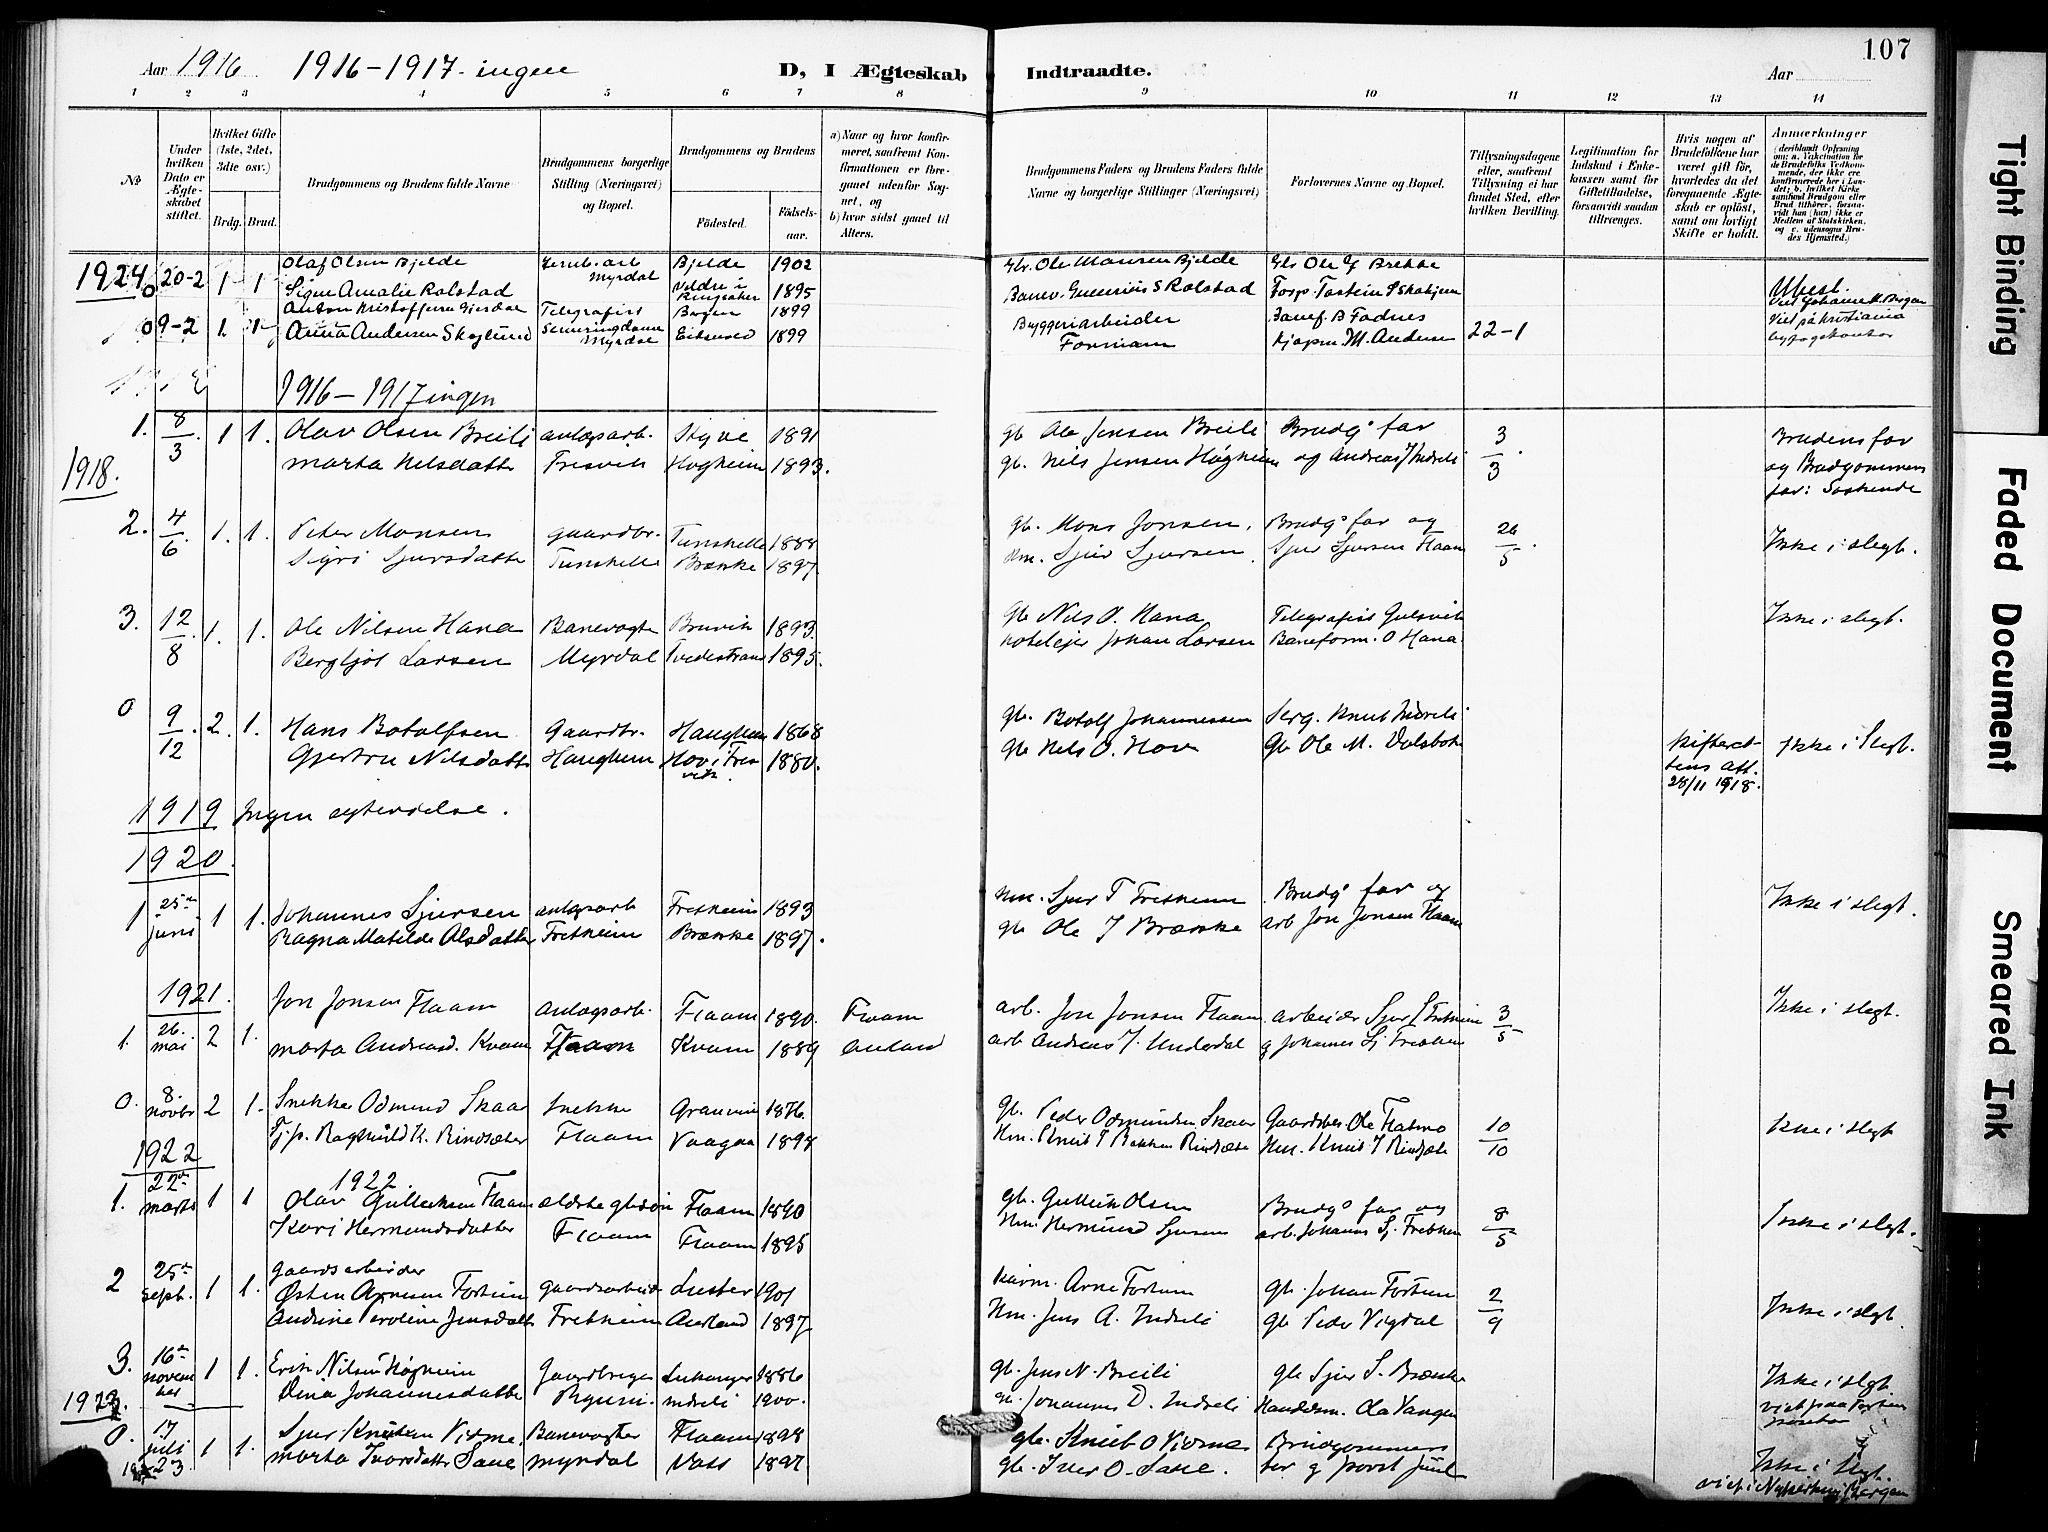 107
Aar 1916 1916-1917 ingen D, I Ægteskab Indtraadte. Aar
1 2 3 4 5 6 7 8 9 10 11 12 13 14
№
Under hvilken Dato er Ægteskabet stiftet.
Hvilket Gifte (1ste, 2det, 3dte osv.)
Brdg. Brud.
Brudgommens og Brudens fulde Navne
Brudgommens borgerlige Stilling (Næringsvei) og Bopæl.
Brudgommens og Brudens
Fødested. Fødselsaar.
a) Naar og hvor konfirmeret, saafremt Konfirmationen er foregaaet udenfor Sognet, og
b) hvor sidst gaaet til Alters.
Brudgommens Faders og Brudens Faders fulde Navne og borgerlige Stillinger (Næringsvei)
Forlovernes Navne og Bopæl.
Tillysningsdagene eller, saafremt Tillysning ei har fundet Sted, efter hvilken Bevilling.
Legitimation for Indskud i Enkekassen samt for Giftetilladelse, forsaavidt saadan tiltrænges.
Hvis nogen af Brudefolkene har været gift før, hvorledes da det foregaaende Ægteskab er opløst, samt om lovligt Skifte er holdt.
Anmærkninger (deriblandt Oplysning om: a. Vakcination for de Brudefolks Vedkommende, der ikke ere konfirmerede her i Landet; b. hvilket Kirkesamfund Brudgom eller Brud tilhører, forsaavidt han (hun) ikke er Medlem af Statskirken, og c. udensogns Brudes Hjemsted.)
1924 0 20-2 1 1 Olaf Olsen Bjelde Jernb. arb Bjelde 1902 Ole Monsen Bjelde Ole Brekke
Signe Amalie Rolstad Myrdal Veldre i Ringsaker 1895 Rolstad Torstein Skahjem Ubest.
Anton Kristoffersen Telegrafist Bergen 1899 Byggeriarbeider B Fodnes
0 9-2 1 1 Anna Andersen Skoglund Myrdal 1899 Formann M. Andersen 22-1 Viet på Kristiania byfogekontor
1916 - 1917 ingen
1918.
1. 8/3 1 1. Olav Olsen Breili anlægsarb. Styve 1891 gb Ole Jensen Breili Brudg's far 3/3 Brudens far
Marta Nelsdatter Fresvik Høgheim 1893. gb. Nils Jensen Høgheim og Andreas J Indreli og Brudgommens far: Søskende
2. 4/6 1. 1. Peter Monsen gaardbr. Tunshelle 1888 gb. Mons Jonsen. Brudg's far og 26/5. Ikke i slegt.
Sigri Sjursdatter Tunshelle Brække 1897. Hm. Sjur Sjursen Sjur Sjursen Flaam
3. 12/8 1. 1. Ole Nilsen Hana Banevogter Bruvik 1893. Gb Nils O. Hana Telegrafist Gulsvik Ikke i slegt.
Bergljot Larsen Myrdal Tvedestrand 1895. Hotelejer Johan Larsen Baneform. O Hana
0 9/12 2. 1. Hans Botolfsen Gaardbr. Haugheim 1868 gb. Botolf Johannessen Serg. Knut Indreli
Gjertru Nilsdatter Haugheim Hov i Fresvik 1880. gb Nels O. Hov Gb Ole M. Skifterettens att. 28/11 1918. Ikke i Slegt.
1919 Ingen egtevielse.
1920.
1 25de juni 1 1. Johannes Sjursen anlægsarb Fretheim 1893 Hm. Sjur T Fretheim Brudg's far og Ikke i slegt.
Ragna Matilde Olsdatter Fretheim Brække 1897. gb Ole J Brække arb Jon Jonsen Flaam
1921.
1. 26. mai 2 1. Jon Jonsen Flaam Anlægsarb. Flaam 1890. Flaam arb. Jon Jonsen Flaam arbeider Sjur S Fretheim 3/5 Ikke i slegt.
Marta Andreasd. Kvam Flaam Kvam 1889 Aurland arb Andreas J. Underdal og Johannes Sj. Fretheim
0. 8. novbr 2 1. Snekker Odmund Skaar Snekker Granvin 1876. gb. Peder Odmundsen Skaar Gaardsbes Ole Flatmo 10/10 Ikke i slegt
Tj.p. Ragnhild K. Rindsæter Flaam Vaagaa 1898 Hm. Knut T Bakken Rindsæte Hm. Knut T Rindsæte
1922
1922.
1. 22de marts 1 1 Olav Gulleiksen Flaam ældste gbsøn Flaam 1890 gb. Gulleik Olsen Brudg's far og 8/5 Ikke i slegt.
Kari Hermundsdatter Flaam Flaam 1895 Hm. Hermund Sjursen arb. Johannes Sj. Fretheim
2 25de sept. 1 1. gaardsarbeider
Østen Arnesen Fortun gaardsarbeid Luster 1901 Arne Fortun gb. Johan Fortun 2/9
Andrine Peroline Jensdatter Fretheim Aurland 1897 Hm. Jens A. Indreli gb Peder Vigdal Ikke i slegt.
3. 16de november 1 1. Erik Nilsen Høgheim Gaardbruger Leikanger 1886 gb. Jens N. Breili gb Sjur S. Brække Ikke i slegt
Dena Johannesdatter Indreli 1900. gb. Johannes D. Indreli Handelsm. Ola Vangen viet paa
1923.
0. 17 juli 1923 1 1. Sjur Knutsen Vidme Banevogter Flaam 1898 gb. Knut O Vidme Brudgommens
Marta Ivarsdatter Saue Myrdal Voss 1897. gb. Iver O. Saue. Ikke i Slegt.
viet i Nykirken i Bergen
Tight Binding
Faded Document
Smeared Ink